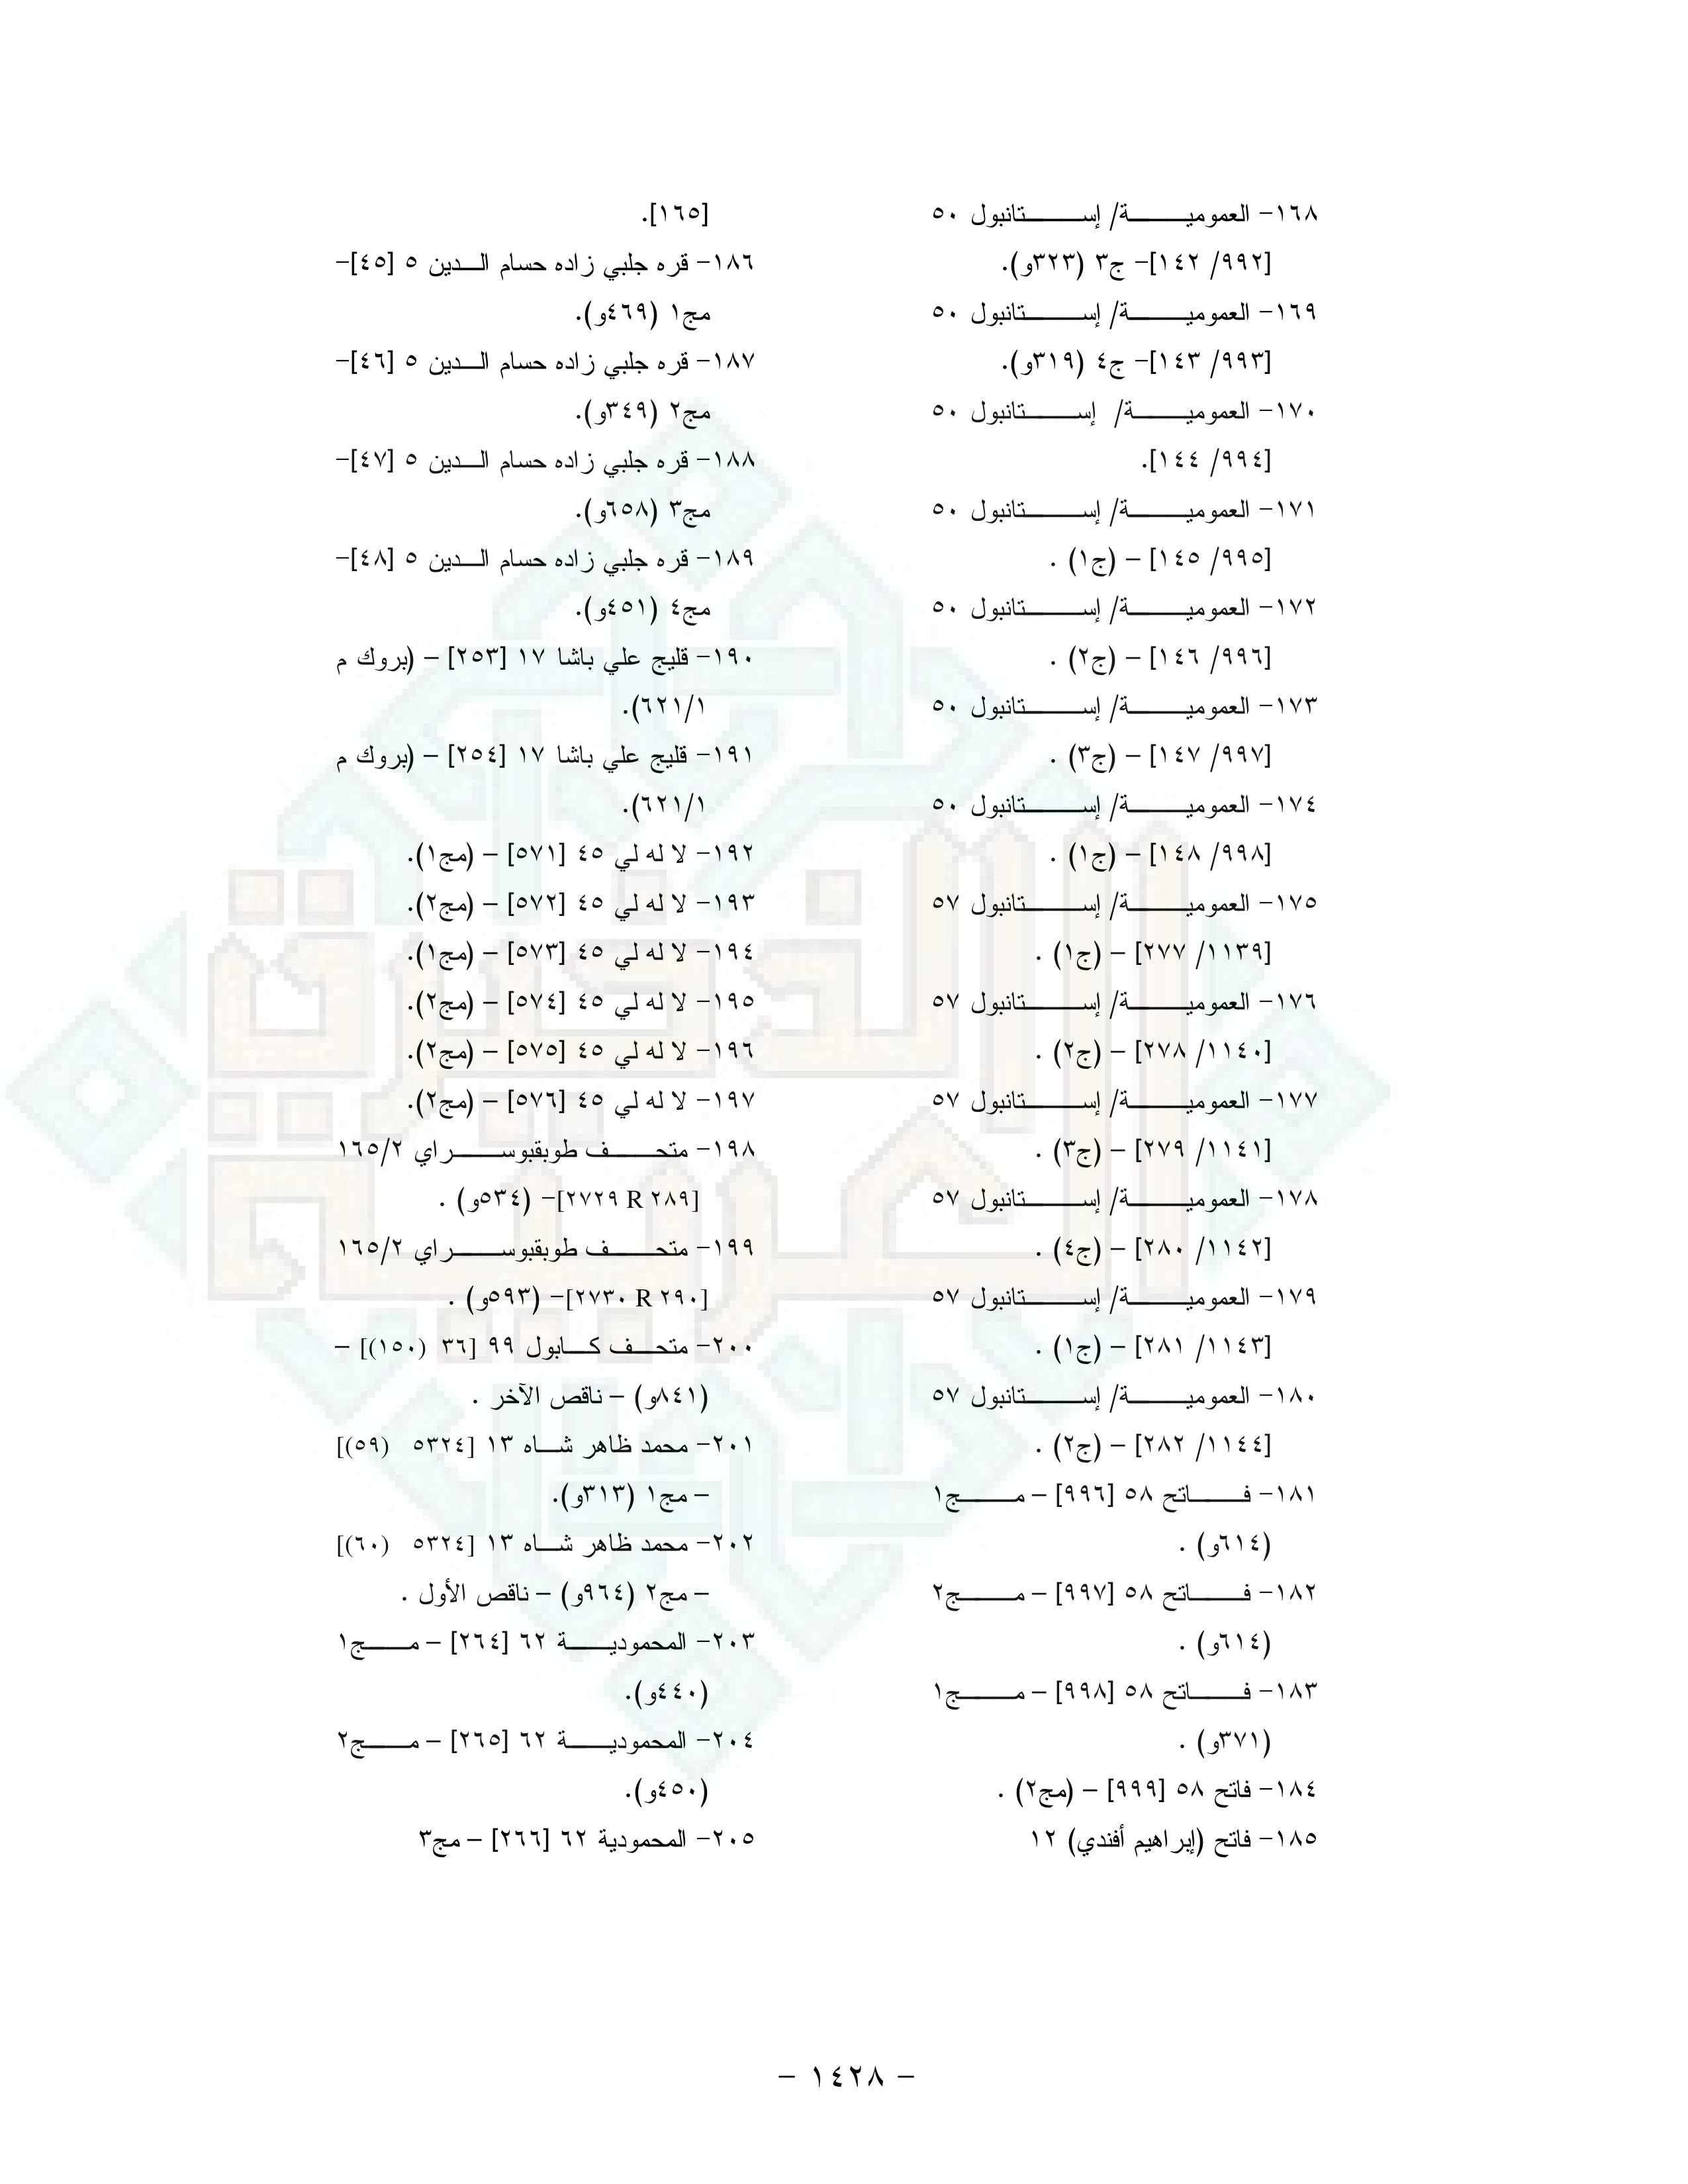 ١٦٨- العمومية/ إستانبول ٥٠
[٩٩٢/ ١٤٢]- ج٣ (٣٢٣و).
١٦٩- العمومية/ إستانبول ٥٠
[٩٩٣/ ١٤٣]- ج٤ (٣١٩و).
١٧٠- العمومية/ إستانبول ٥٠
[٩٩٤/ ١٤٤].
١٧١- العمومية/ إستانبول ٥٠
[٩٩٥/ ١٤٥] – (ج١) .
١٧٢- العمومية/ إستانبول ٥٠
[٩٩٦/ ١٤٦] – (ج٢) .
١٧٣- العمومية/ إستانبول ٥٠
[٩٩٧/ ١٤٧] – (ج٣) .
١٧٤- العمومية/ إستانبول ٥٠
[٩٩٨/ ١٤٨] – (ج١) .
١٧٥- العمومية/ إستانبول ٥٧
[١١٣٩/ ٢٧٧] – (ج١) .
١٧٦- العمومية/ إستانبول ٥٧
[١١٤٠/ ٢٧٨] – (ج٢) .
١٧٧- العمومية/ إستانبول ٥٧
[١١٤١/ ٢٧٩] – (ج٣) .
١٧٨- العمومية/ إستانبول ٥٧
[١١٤٢/ ٢٨٠] – (ج٤) .
١٧٩- العمومية/ إستانبول ٥٧
[١١٤٣/ ٢٨١] – (ج١) .
١٨٠- العمومية/ إستانبول ٥٧
[١١٤٤/ ٢٨٢] – (ج٢) .
١٨١- فاتح ٥٨ [٩٩٦] – مج١
(٦١٤و) .
١٨٢- فاتح ٥٨ [٩٩٧] – مج٢
(٦١٤و) .
١٨٣- فاتح ٥٨ [٩٩٨] – مج١
(٣٧١و) .
١٨٤- فاتح ٥٨ [٩٩٩] – (مج٢) .
١٨٥- فاتح (إبراهيم أفندي) ١٢
[١٦٥].
١٨٦- قره جلبي زاده حسام الدين ٥ [٤٥]-
مج١ (٤٦٩و).
١٨٧- قره جلبي زاده حسام الدين ٥ [٤٦]-
مج٢ (٣٤٩و).
١٨٨- قره جلبي زاده حسام الدين ٥ [٤٧]-
مج٣ (٦٥٨و).
١٨٩- قره جلبي زاده حسام الدين ٥ [٤٨]-
مج٤ (٤٥١و).
١٩٠- قليج علي باشا ١٧ [٢٥٣] – (بروك م
١/ ٦٢١).
١٩١- قليج علي باشا ١٧ [٢٥٤] – (بروك م
١/ ٦٢١).
١٩٢- لا له لي ٤٥ [٥٧١] – (مج١).
١٩٣- لا له لي ٤٥ [٥٧٢] – (مج٢).
١٩٤- لا له لي ٤٥ [٥٧٣] – (مج١).
١٩٥- لا له لي ٤٥ [٥٧٤] – (مج٢).
١٩٦- لا له لي ٤٥ [٥٧٥] – (مج٢).
١٩٧- لا له لي ٤٥ [٥٧٦] – (مج٢).
١٩٨- متحف طوبقبوسراي ٢/ ١٦٥
[٢٨٩ R ٢٧٢٩]- (٥٣٤و) .
١٩٩- متحف طوبقبوسراي ٢/ ١٦٥
[٢٩٠ R ٢٧٣٠]- (٥٩٣و) .
٢٠٠- متحف كابول ٩٩ [٣٦ (١٥٠)] –
(٨٤١و) – ناقص الآخر .
٢٠١- محمد ظاهر شاه ١٣ [٥٣٢٤ (٥٩)]
– مج١ (٣١٣و).
٢٠٢- محمد ظاهر شاه ١٣ [٥٣٢٤ (٦٠)]
– مج٢ (٩٦٤و) – ناقص الأول .
٢٠٣- المحمودية ٦٢ [٢٦٤] – مج١
(٤٤٠و).
٢٠٤- المحمودية ٦٢ [٢٦٥] – مج٢
(٤٥٠و).
٢٠٥- المحمودية ٦٢ [٢٦٦] – مج٣
– ١٤٢٨ –
الذخيرة
العربية